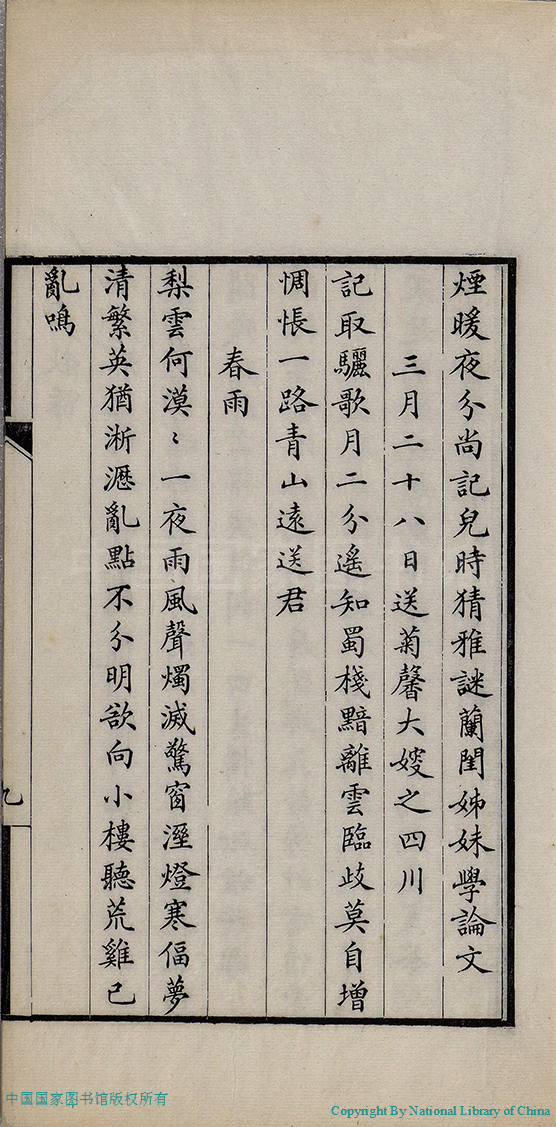 煙暖夜分尚記兒時猜雅謎蘭閨姊妹學論文
三月二十八日送菊馨大嫂之四川
記取驪歌月二分遙知蜀棧黯離雲臨歧莫自增
惆悵一路青山遠送君
春雨
梨雲何漠〻一夜雨風聲燭滅驚窗溼燈寒偪夢
清繁英猶淅瀝亂點不分明欲向小樓聽荒雞已
亂鳴
九
中国国家图书馆版权所有
Copyright By National Library of China